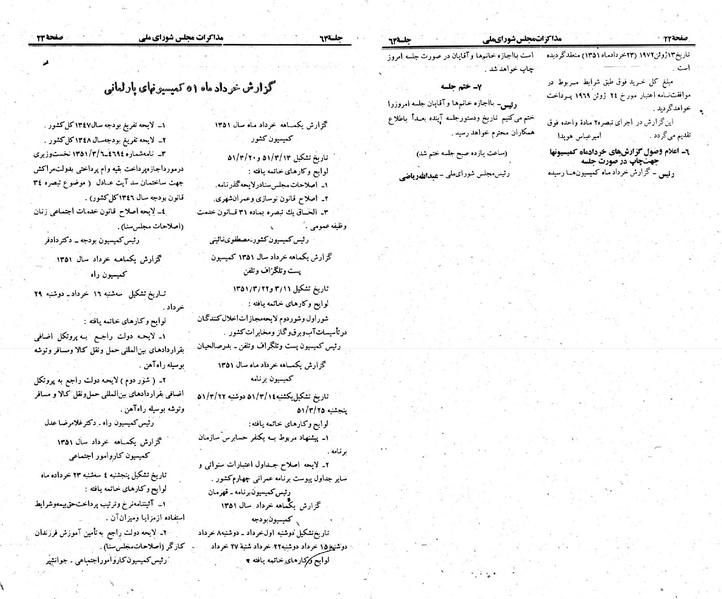 صفحه ۲۲ مذاکرات مجلس شورای ملی جلسه ۶۳
تاریخ ۱۳ ژوئن ۱۹۷۲ (۲۳ خردادماه ۱۳۵۱) منعقد گردیده
است.
مبلغ کل خرید فوق طبق شرایط مربوط در
موافقت‌نامه اعتبار مورخ ۲۴ ژوئن ۱۹۶۹ پرداخت
خواهد گردید.
این گزارش در اجرای تبصره ۲ ماده واحده فوق
تقدیم می‌گردد. امیرعباس هویدا
۶- اعلام وصول گزارش‌های خردادماه کمیسیونها
جهت چاپ در صورت جلسه
رئیس - گزارش خرداد ماه کمیسیون‌ها رسیده
است با اجازه خانم‌ها و آقایان در صورت جلسه امروز
چاپ خواهد شد.
۷- ختم جلسه
رئیس- با اجازه خانم‌ها و آقایان جلسه امروز را
ختم می‌کنیم تاریخ و دستور جلسه آینده بعداً باطلاع
همکاران محترم خواهد رسید.
(ساعت یازده صبح جلسه ختم شد)
رئیس مجلس شورای ملی - عبدالله ریاضی
جلسه ۶۳ مذاکرات مجلس شورای ملی صفحه ۲۳
گزارش خرداد ماه ۵۱ کمیسیونهای پارلمانی
گزارش یکماهه خرداد ماه سال ۱۳۵۱
کمیسیون کشور
تاریخ تشکیل ۱۳۵۱/۳/۱۳ و ۵۱/۳/۲۰
لوایح و کارهای خاتمه یافته:
۱- اصلاحات مجلس سنا در لایحه گذرنامه.
۲- اصلاح قانون نوسازی و عمران شهری.
۳- الحاق یك تبصره بماده ۳۱ قانون خدمت
وظیفه عمومی.
رئیس کمیسیون کشور- مصطفوی نائینی
گزارش یکماهه خرداد ماه سال ۱۳۵۱ کمیسیون
پست و تلگراف و تلفن
تاریخ تشکیل ۳/۱۱ و ۱۳۵۱/۳/۲۲
لوایح و کارهای خاتمه یافته:
شور اول و شور دوم لایحه مجازات اخلال کنندگان
در تأسیسات آب و برق و گاز و مخابرات کشور.
رئیس کمیسیون پست و تلگراف و تلفن - بدرصالحیان
گزارش یکماهه خرداد ماه سال ۱۳۵۱
کمیسیون برنامه
تاریخ تشکیل یکشنبه ۵۱/۳/۱۴ دوشنبه ۵۱/۳/۲۲
پنجشنبه ۵۱/۳/۲۵
لوایح و کارهای خاتمه یافته:
۱- پیشنهاد مربوط به یکنفر حسابرس سازمان
برنامه.
۲- لایحه اصلاح جداول اعتبارات سنواتی و
سایر جداول پیوست برنامه عمرانی چهارم کشور.
رئیس کمیسیون برنامه - قهرمان
گزارش یکماهه خرداد ماه سال ۱۳۵۱
کمیسیون بودجه
تاریخ تشکیل دوشنبه اول خرداد - دوشنبه ۸ خرداد
دوشنبه ۱۵ خرداد دوشنبه ۲۲ خرداد شنبه ۲۷ خرداد
لوایح و کارهای خاتمه یافته:
۱- لایحه تفریغ بودجه سال ۱۳۴۷ کل کشور.
۲- لایحه تفریغ بودجه سال ۱۳۴۸ کل کشور.
۳- نامه شماره ۴۶۹۴-۱۳۵۱/۳/۶ نخست‌وزیری
در مورد اجازه پرداخت بقیه وام پرداختی بدولت مراکش
جهت ساختمان سد آیت عادل (موضوع تبصره ۳۴
قانون بودجه سال ۱۳۴۶ کل کشور).
۴- لایحه اصلاح قانون خدمات اجتماعی زنان
(اصلاحات مجلس سنا).
رئیس کمیسیون بودجه - دکتر دادفر
گزارش یکماهه خرداد سال ۱۳۵۱
کمیسیون راه
تاریخ تشکیل سه‌شنبه ۱۶ خرداد - دوشنبه ۲۹
خرداد.
لوایح و کارهای خاتمه یافته:
۱- لایحه دولت راجع به پروتکل اضافی
بقراردادهای بین‌المللی حمل و نقل کالا و مسافر و توشه
بوسیله راه‌آهن.
۲- (شور دوم) لایحه دولت راجع به پروتکل
اضافی بقراردادهای بین‌المللی حمل و نقل کالا و مسافر
و توشه بوسیله راه‌آهن.
رئیس کمیسیون راه - دکتر غلامرضا عدل
گزارش یکماهه خرداد سال ۱۳۵۱
کمیسیون کار و امور اجتماعی
تاریخ تشکیل پنجشنبه ۴ سه‌شنبه ۲۳ خرداد ماه
لوایح و کارهای خاتمه یافته:
۱- آئیننامه نرخ و ترتیب پرداخت حق بیمه و شرایط
استفاده از مزایا و میزان آن.
۲- لایحه دولت راجع به تأمین آموزش فرزندان
کارگر (اصلاحات مجلس سنا).
رئیس کمیسیون کار و امور اجتماعی - جوانشیر